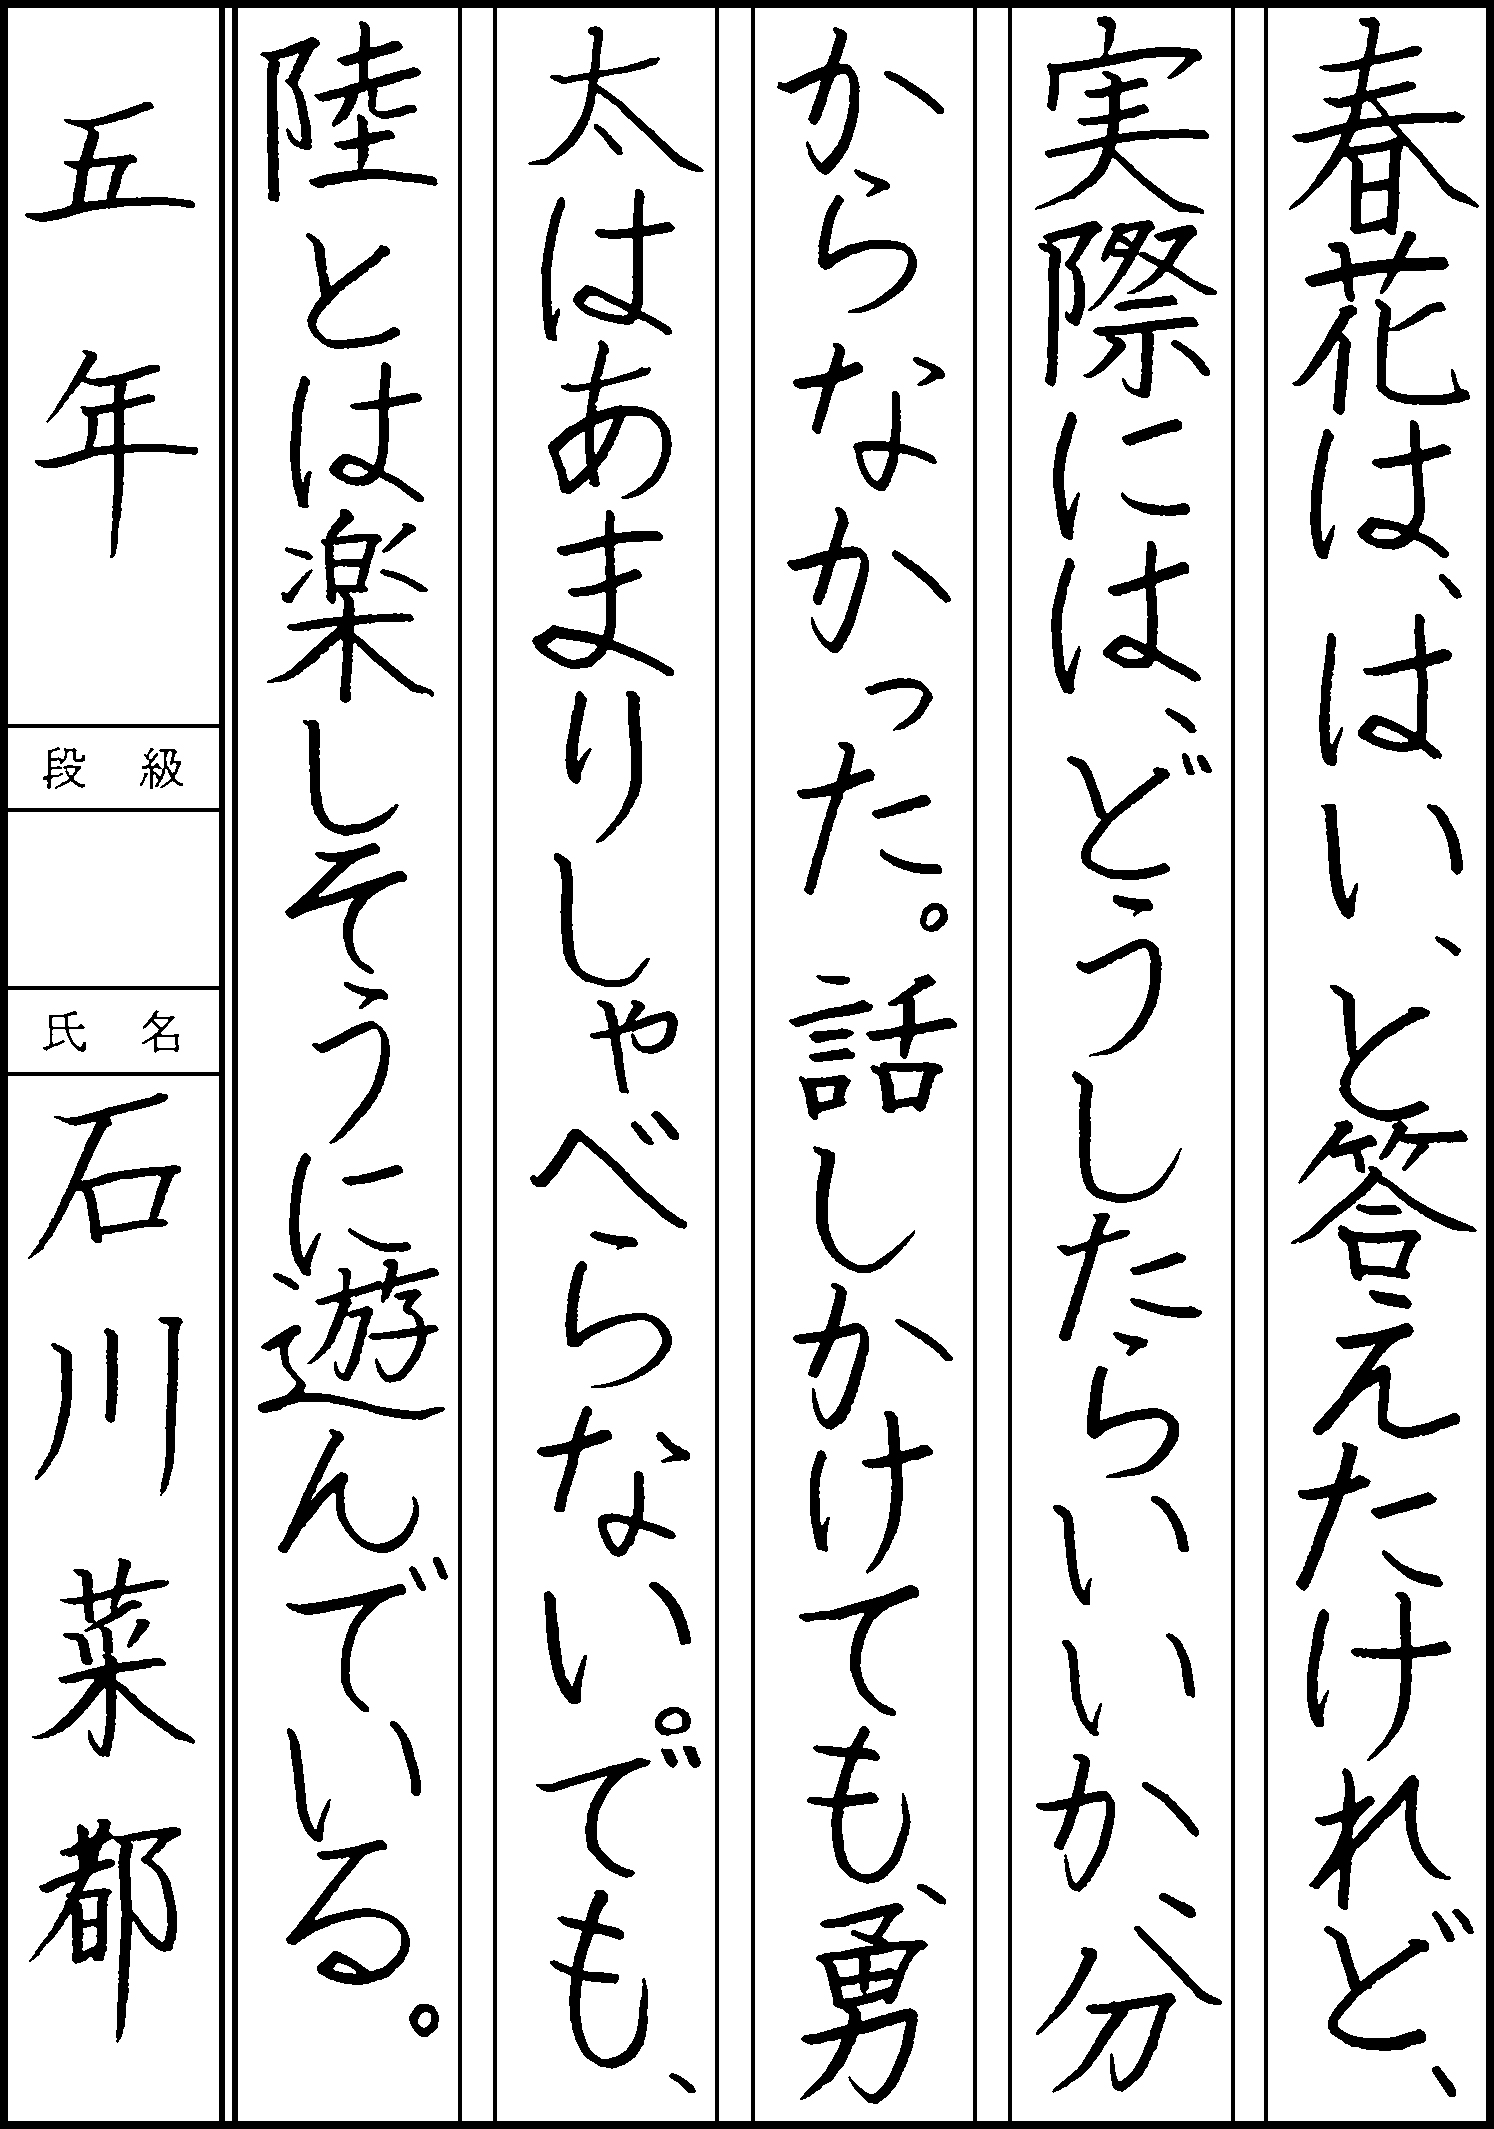 春花は、はい、と答えたけれど、
実際には、どうしたらいいか、分
からなかった。話しかけても、勇
太はあまりしゃべらない。でも、
陸とは楽しそうに遊んでいる。
五年
段級
氏名
石川菜都